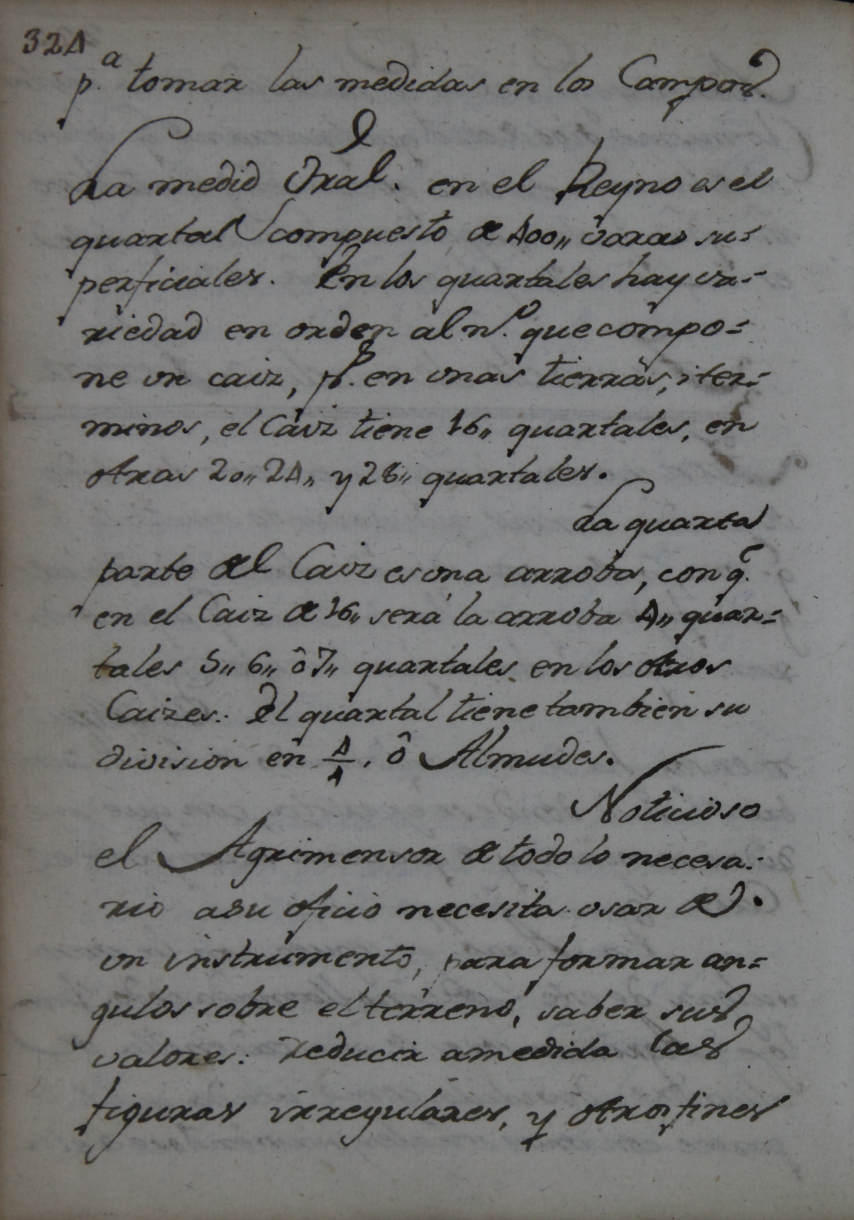 324
p.ª tomar las medidas en los Campos.
La medid Gral. en el Reyno es el
quartal compuesto de 400,, varas su-
perficiales. En los quartales hay va-
riedad en orden al n.º que compo=
ne un caiz, p.ª en unas tierras, i ter=
minos, el Caiz tiene 16,, quartales, en
otras 20,, 24,, y 28,, quartales.
La quarta
parte del Caiz es una arroba, con q.
en el Caiz de 16,, será la arroba 4,, quar=
tales 5,, 6,, ô 7,, quartales en los otros
Caizes. El quartal tiene tambien su
division en 4/4, ô Almudes.
Noticioso
el Agrimensor de todo lo necesa-
rio a su oficio necesita usar de
un instrumento, para formar an=
gulos sobre el terreno, saber sus
valores: reducir a medida las
figuras irregulares, y otros fines